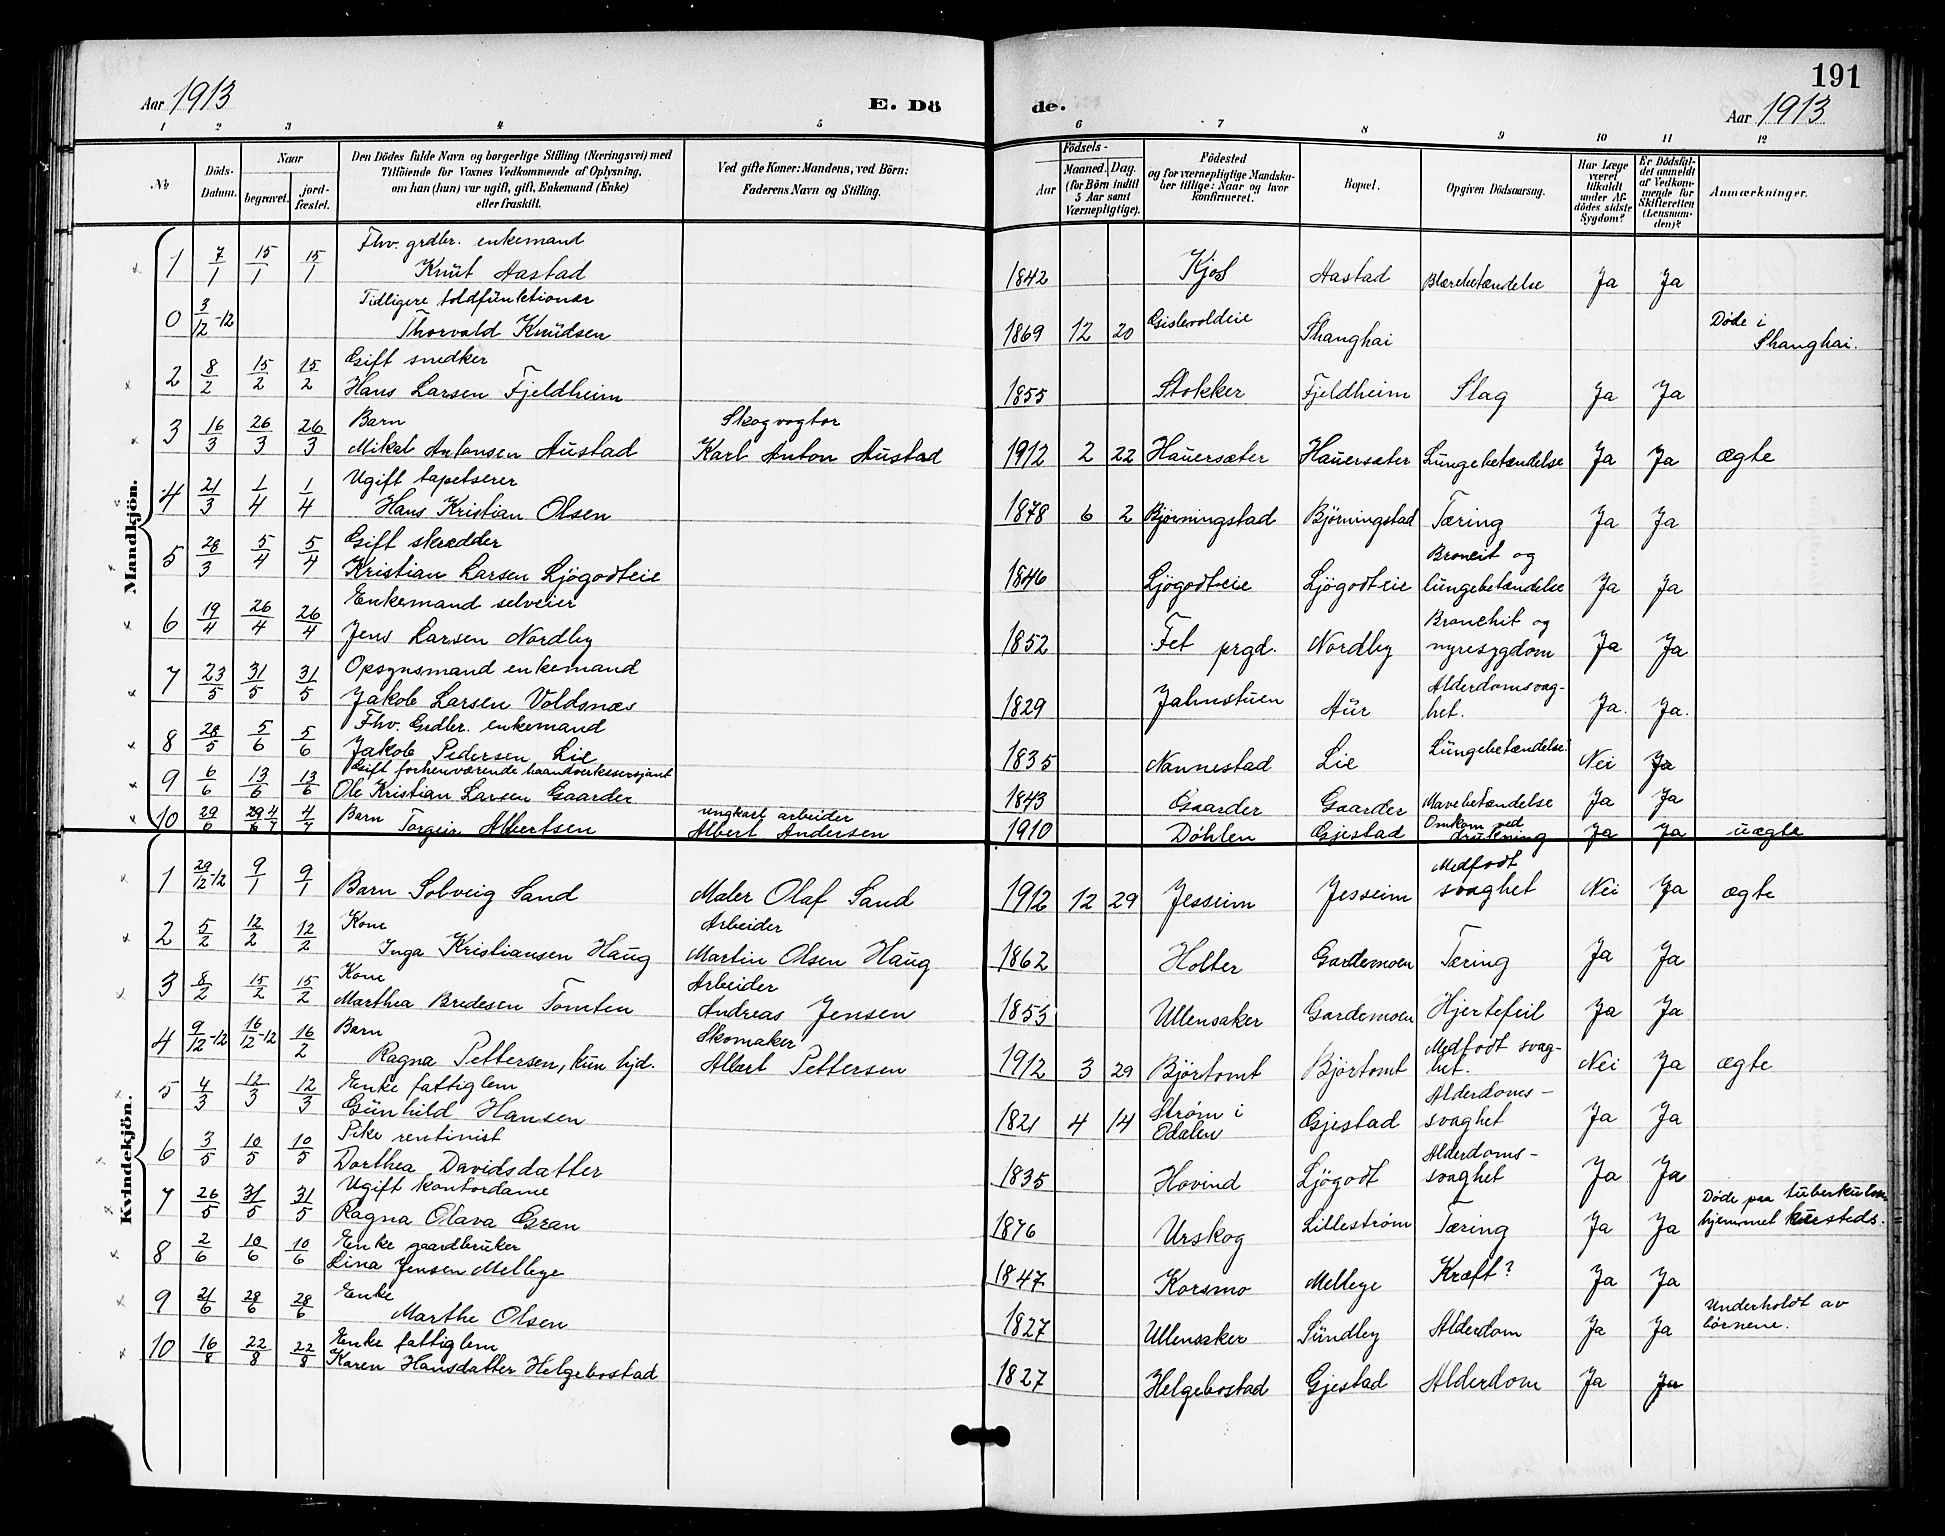 191
Aar 1913
E. Dö
de.
Aar 1913
1 2 3 4 5 6 7 8 9 10 11 12
No
Döds-
Datum.
Naar
begravet.
jord-
fæstet.
Den Dödes fulde Navn og borgerlige Stilling (Næringsvei) med
Tilföiende for Voxnes Vedkommende af Oplysning,
om han (hun) var ugift, gift, Enkemand (Enke)
eller fraskilt.
Ved gifte Koner: Mandens, ved Börn:
Faderens Navn og Stilling.
Födsels-
Aar
Maaned. Dag.
(for Börn indtil
5 Aar samt
Værnepligtige).
Födested
og for værnepligtige Mandska-
ber tillige: Naar og hvor
konfirmeret.
Bopæl.
Opgiven Dödsaarsag.
Har Læge
været
tilkaldt
under Af-
dödes sidste
Sygdom?
Er Dödsfal-
det anmeldt
af Vedkom-
mende for
Skifteretten
(Lensman-
den)?
Anmærkninger.
Mandkjön.
Fhv. grdbr. enkemand
1 7/1 15/1 15/1 Knut Aastad 1842 Kjos Aastad Blærebetændelse Ja Ja
Tidligere toldfunktionær
0 3/12-12 Thorvald Knudsen 1869 12 20 Gislevoldeie Shanghai Døde i
Shanghai.
Gift snedker
2 8/2 15/2 15/2 Hans Larsen Fjeldheim 1855 Stokker Fjeldheim Slag Ja Ja
Barn Skogvogter
3 16/3 26/3 26/3 Mikal Antonsen Austad Karl Anton Austad 1912 2 22 Hauersæter Hauersæter Lungebetændelse Ja Ja ægte
Ugift tapetserer
4 21/3 1/4 1/4 Hans Kristian Olsen 1878 6 2 Bjørningstad Bjørningstad Tæring Ja Ja
Gift skrædder Broncit og
5 28/3 5/4 5/4 Kristian Larsen Ljögodteie 1846 Ljögodteie Ljögodteie lungebetændelse Ja Ja
Enkemand selveier Bronchit og
6 19/4 26/4 26/4 Jens Larsen Nordby 1852 Fet prgd. Nordby nyresygdom Ja Ja
Opsynsmand enkemand Alderdomsvag-
7 23/5 31/5 31/5 Jakob Larsen Voldsnæs 1829 Jahnstuen Aur het. Ja. Ja.
Fhv. Grdbr. enkemand
8 28/5 5/6 5/6 Jakob Pedersen Lie 1835 Nannestad Lie Lungebetændelse Nei Ja
Gift forhenværende haandverkssersjant
9 6/6 13/6 13/6 Ole Kristian Larsen Gaarder 1843 Gaarder Gaarder Mavebetændelse Ja Ja
Barn ungkarl arbeider Omkom ved
10 29/6 4/7 4/7 Torgeir Albertsen Albert Andersen 1910 Døhlen Gjestad drukning Ja Ja uægte
Kvindekjön.
Medfødt
1 29/12-12 9/1 9/1 Barn Solveig Sand Maler Olaf Sand 1912 12 29 Jesseim Jesseim svaghet Nei Ja ægte
Kone Arbeider
2 5/2 12/2 12/2 Inga Kristiansen Haug Martin Olsen Haug 1862 Holter Gardemoen Tæring Ja Ja
Kone Arbeider
3 8/2 15/2 15/2 Marthea Bredesen Tomten Andreas Jensen 1853 Ullensaker Gardemoen Hjertefeil Ja Ja
Barn Skomaker Medfødt svag-
4 9/12-12 16/12-12 16/2 Ragna Pettersen, kun hjd. Albert Pettersen 1912 3 29 Björtomt Björtomt het. Nei Ja ægte
Enke fattiglem Alderdoms-
5 4/3 12/3 12/3 Gunhild Hansen 1821 4 14 Strøm i Odalen Gjestad svaghet Ja Ja
Pike rentinist Alderdoms-
6 3/5 10/5 10/5 Dorthea Davidsdatter 1835 Hovind Ljögodt svaghet Ja Ja
Ugift kontordame Døde paa
7 26/5 31/5 31/5 Ragna Olava Gran 1876 Urskog Lillestrøm Tæring Ja Ja hjemmet
Enke gaardbruker
8 2/6 10/6 10/6 Lina Jensen Mellege 1847 Korsmo Mellege Kræft? Ja Ja
Enke Underholdt av
9 21/6 28/6 28/6 Marthe Olsen 1827 Ullensaker Sundby Alderdom Ja Ja börnene.
Enke fattiglem
10 16/8 22/8 22/8 Karen Hansdatter Helgebostad 1827 Helgebostad Gjestad Alderdom Ja Ja